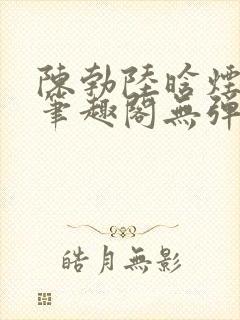 陳勃陸晗煙
筆趣閣無彈
皓月無影